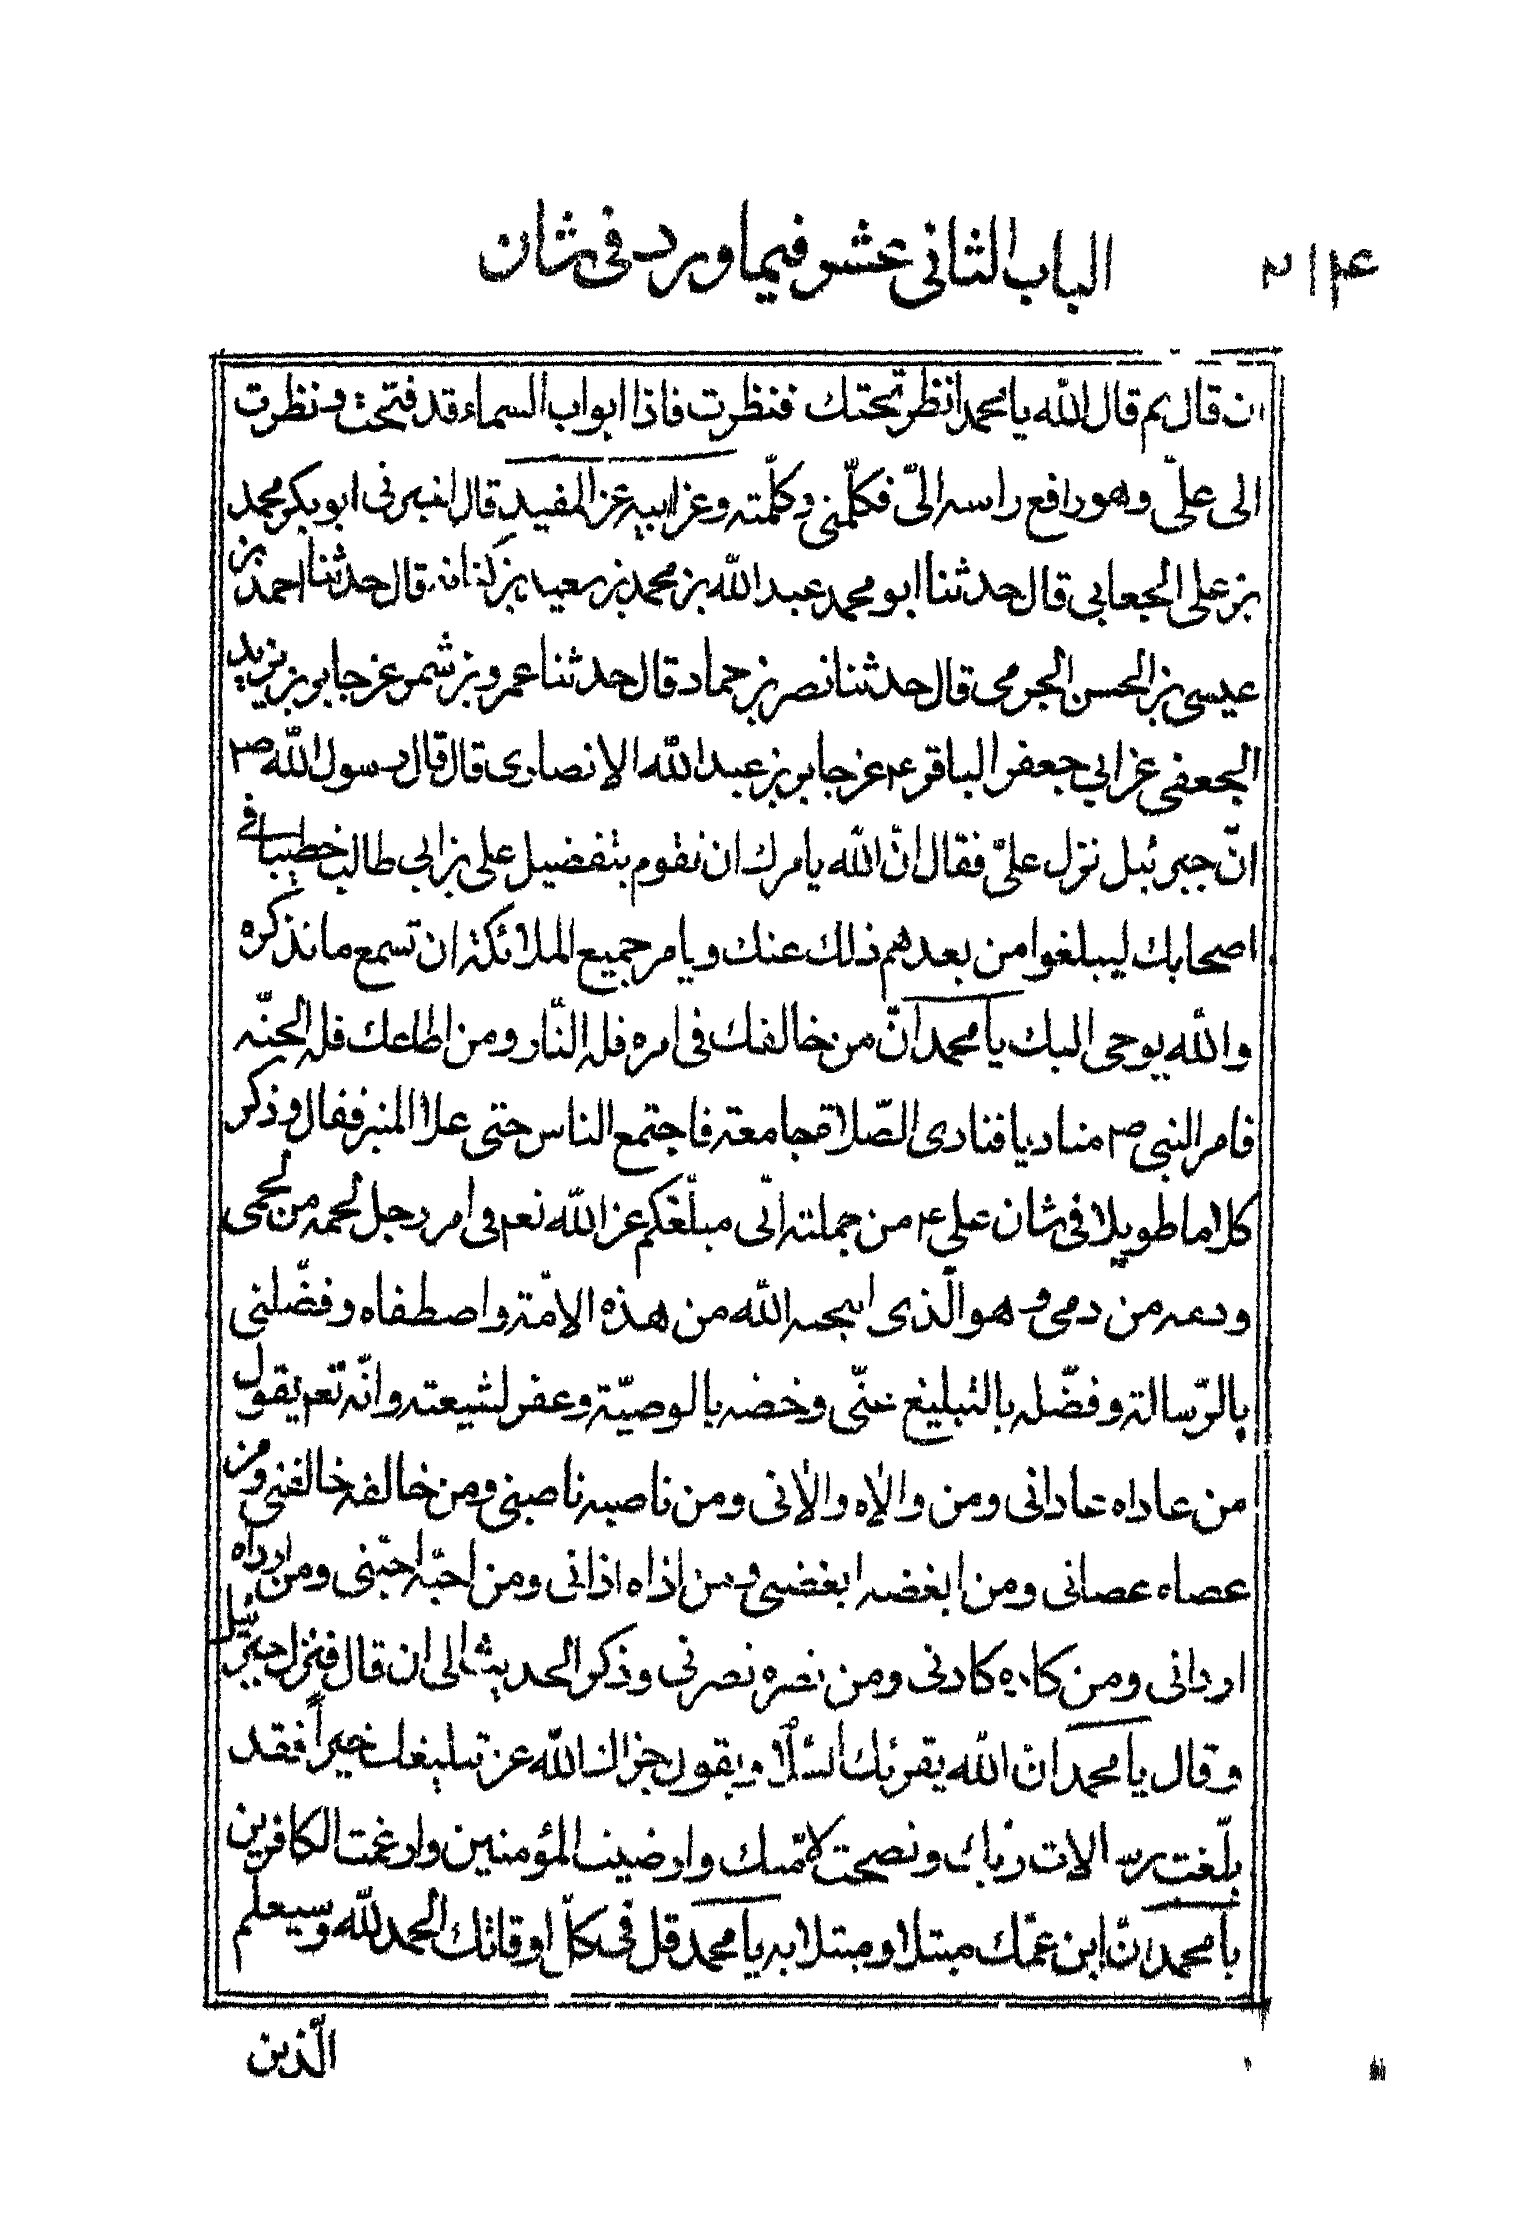 الباب الثانى عشر فيما ورد فى شان ٢١٤
ان قال ثم قال الله يا محمد انظر تحتك فنظرت فاذا ابواب السماء قد فتحت و نظرت
الى علىّ وهو رافع راسه الىّ فكلّمنى و كلّمته وعن ابيه عن المفيد قال اخبرنى ابو بكر محمد
بن على الجعابى قال حدثنا ابو محمد عبد الله بن محمد بن سعيد بن كنانه قال حدثنا احمد بن
عيسى بن الحسن الجرمى قال حدثنا نصر بن حماد قال حدثنا عمرو بن شمر عن جابر بن يزيد
الجعفى عن ابى جعفر الباقر ع عن جابر بن عبد الله الانصارى قال قال رسول الله ص
انّ جبرئيل نزل علىّ فقال انّ الله يامرك ان تقوم بتفضيل على بن ابى طالب خطيبا فى
اصحابك ليبلغوا من بعدهم ذلك عنك ويامر جميع الملائكة ان تسمع ما تذكره
والله يوحى اليك يا محمد انّ من خالفك فى امره فله النّار ومن اطاعك فله الجنّه
فامر النبى ص مناديا فنادى الصّلاة جامعة فاجتمع الناس حتى علا المنبر فقال وذكر
كلاما طويلا فى شان على ع من جملته انّى مبلّغكم عن الله تعم فى امر رجل لحمه من لحمى
ودمه من دمى و هو الّذى انتجبه الله من هذه الامّة واصطفاه وفضّلنى
بالرّسالة وفضّله بالتبليغ عنّى وخصه بالوصيّة وغفر لشيعته وانّه تعم يقول
من عاداه عادانى ومن والاه والانى ومن ناصبه ناصبنى ومن خالفه خالفنى ومن
عصاه عصانى ومن ابغضه ابغضنى و من اذاه اذانى ومن احبّه احبّنى ومن ارداه
اردانى ومن كاده كادنى ومن نصره نصرنى وذكر الحديث الى ان قال فنزل جبرئيل
وقال يا محمد انّ الله يقرئك السّلام ويقول جزاك الله عن تبليغك خيراً فقد
بلّغت رسالات ربك ونصحت لامّتك وارضيت المؤمنين وارغمت الكافرين
يا محمد انّ ابن عمّك مبتلا ومبتلا به يا محمد قل فى كلّ اوقاتك الحمد للّه وسيعلم
الّذين